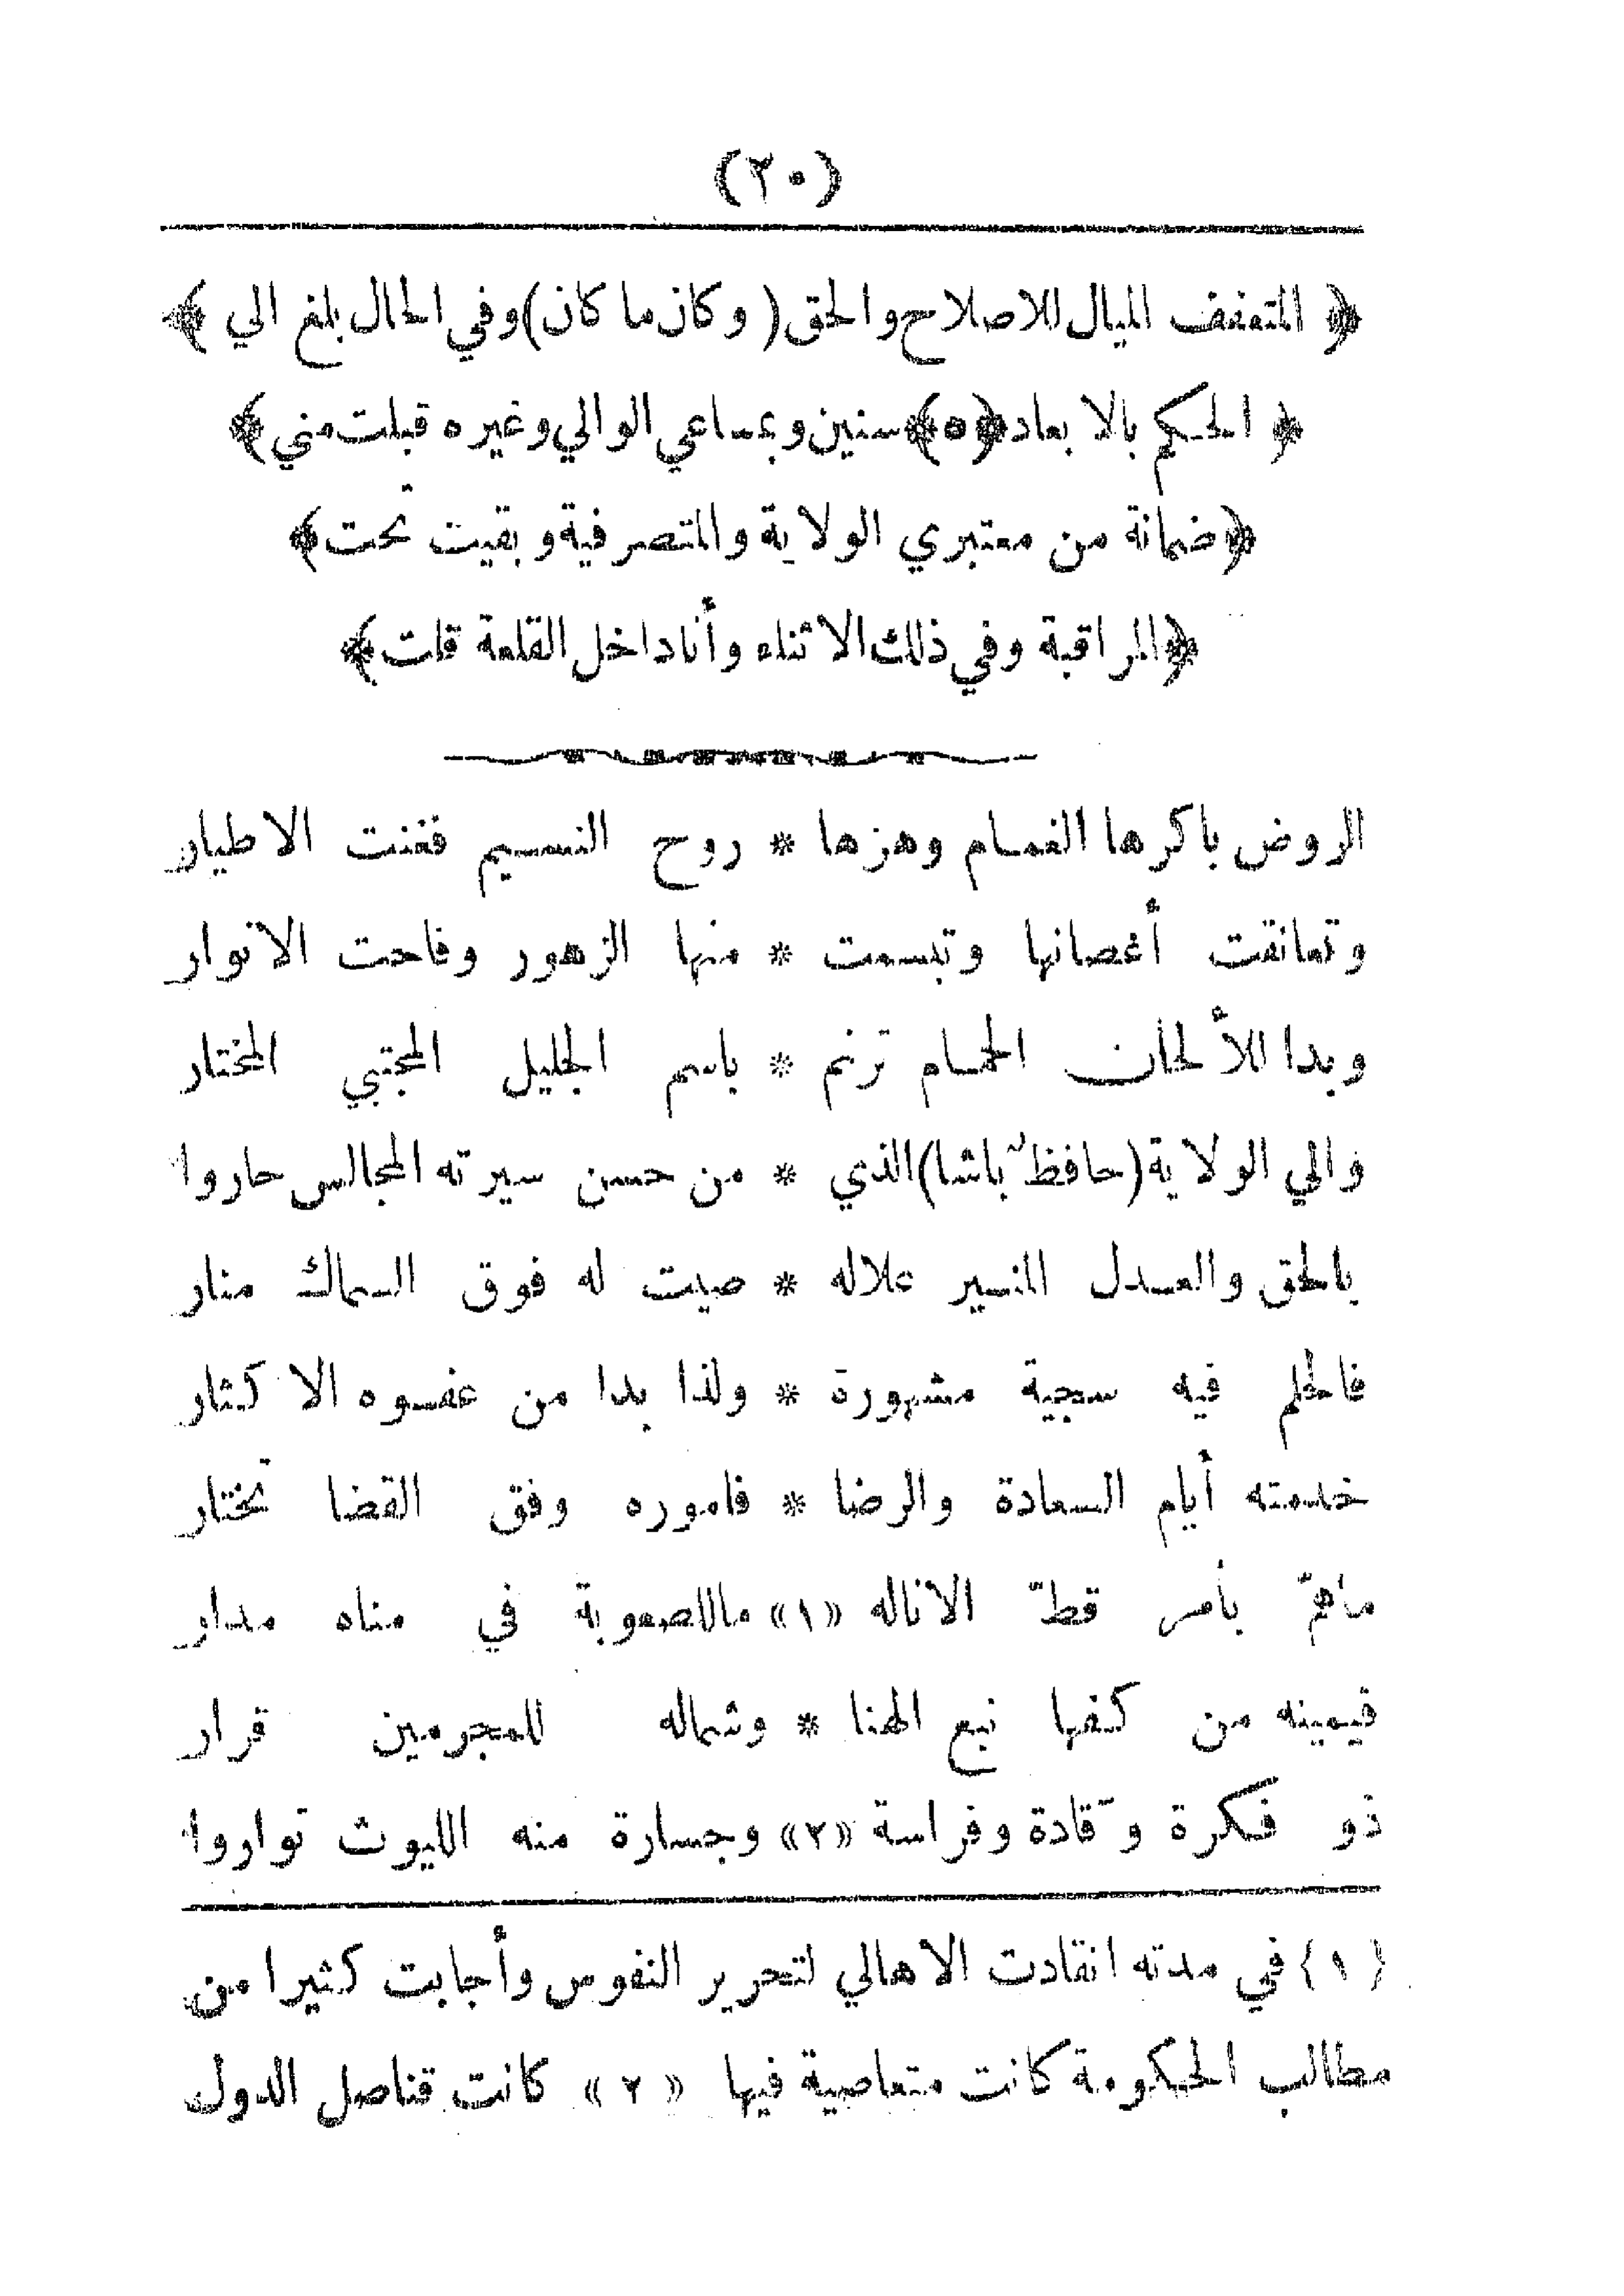 (٢٠)
﴿ المتعفف الميال للاصلاح والحق ( وكان ما كان ) وفي الحال بلغ الي ﴾
﴿ الحكم بالابعاد ﴿٥﴾ سنين وبمساعي الوالي وغيره قبلت مني ﴾
﴿ ضمانة من معتبري الولاية والمتصرفية وبقيت تحت ﴾
﴿ المراقبة وفي ذلك الاثناء وأنا داخل القلعة قلت ﴾
الروض باكرها الغمام وهزها * روح النسيم فغنت الاطيار
وتعانقت أغصانها وتبسمت * منها الزهور وفاحت الانوار
وبدا للألحان الحمام ترنم * باسم الجليل المجتبي المختار
والي الولاية (حافظ باشا) الذي * من حسن سيرته المجالس حاروا
بالحق والعدل المنير علاله * صيت له فوق السماك منار
فالحلم فيه سجية مشهورة * ولذا بدا من عفوه الاكثار
خدمته أيام السعادة والرضا * فاموره وفق القضا تختار
ماهمّ بأمر قطّ الاناله «١» ماللصعوبة في مناه مدار
فيمينه من كفها نبع الهنا * وشماله للمجرمين قرار
ذو فكرة وقّادة وفراسة «٢» وجسارة منه الليوث تواروا
{١} في مدته انقادت الاهالي لتحرير النفوس وأجابت كثيرا من
مطالب الحكومة كانت متعاصية فيها «٢» كانت قناصل الدول